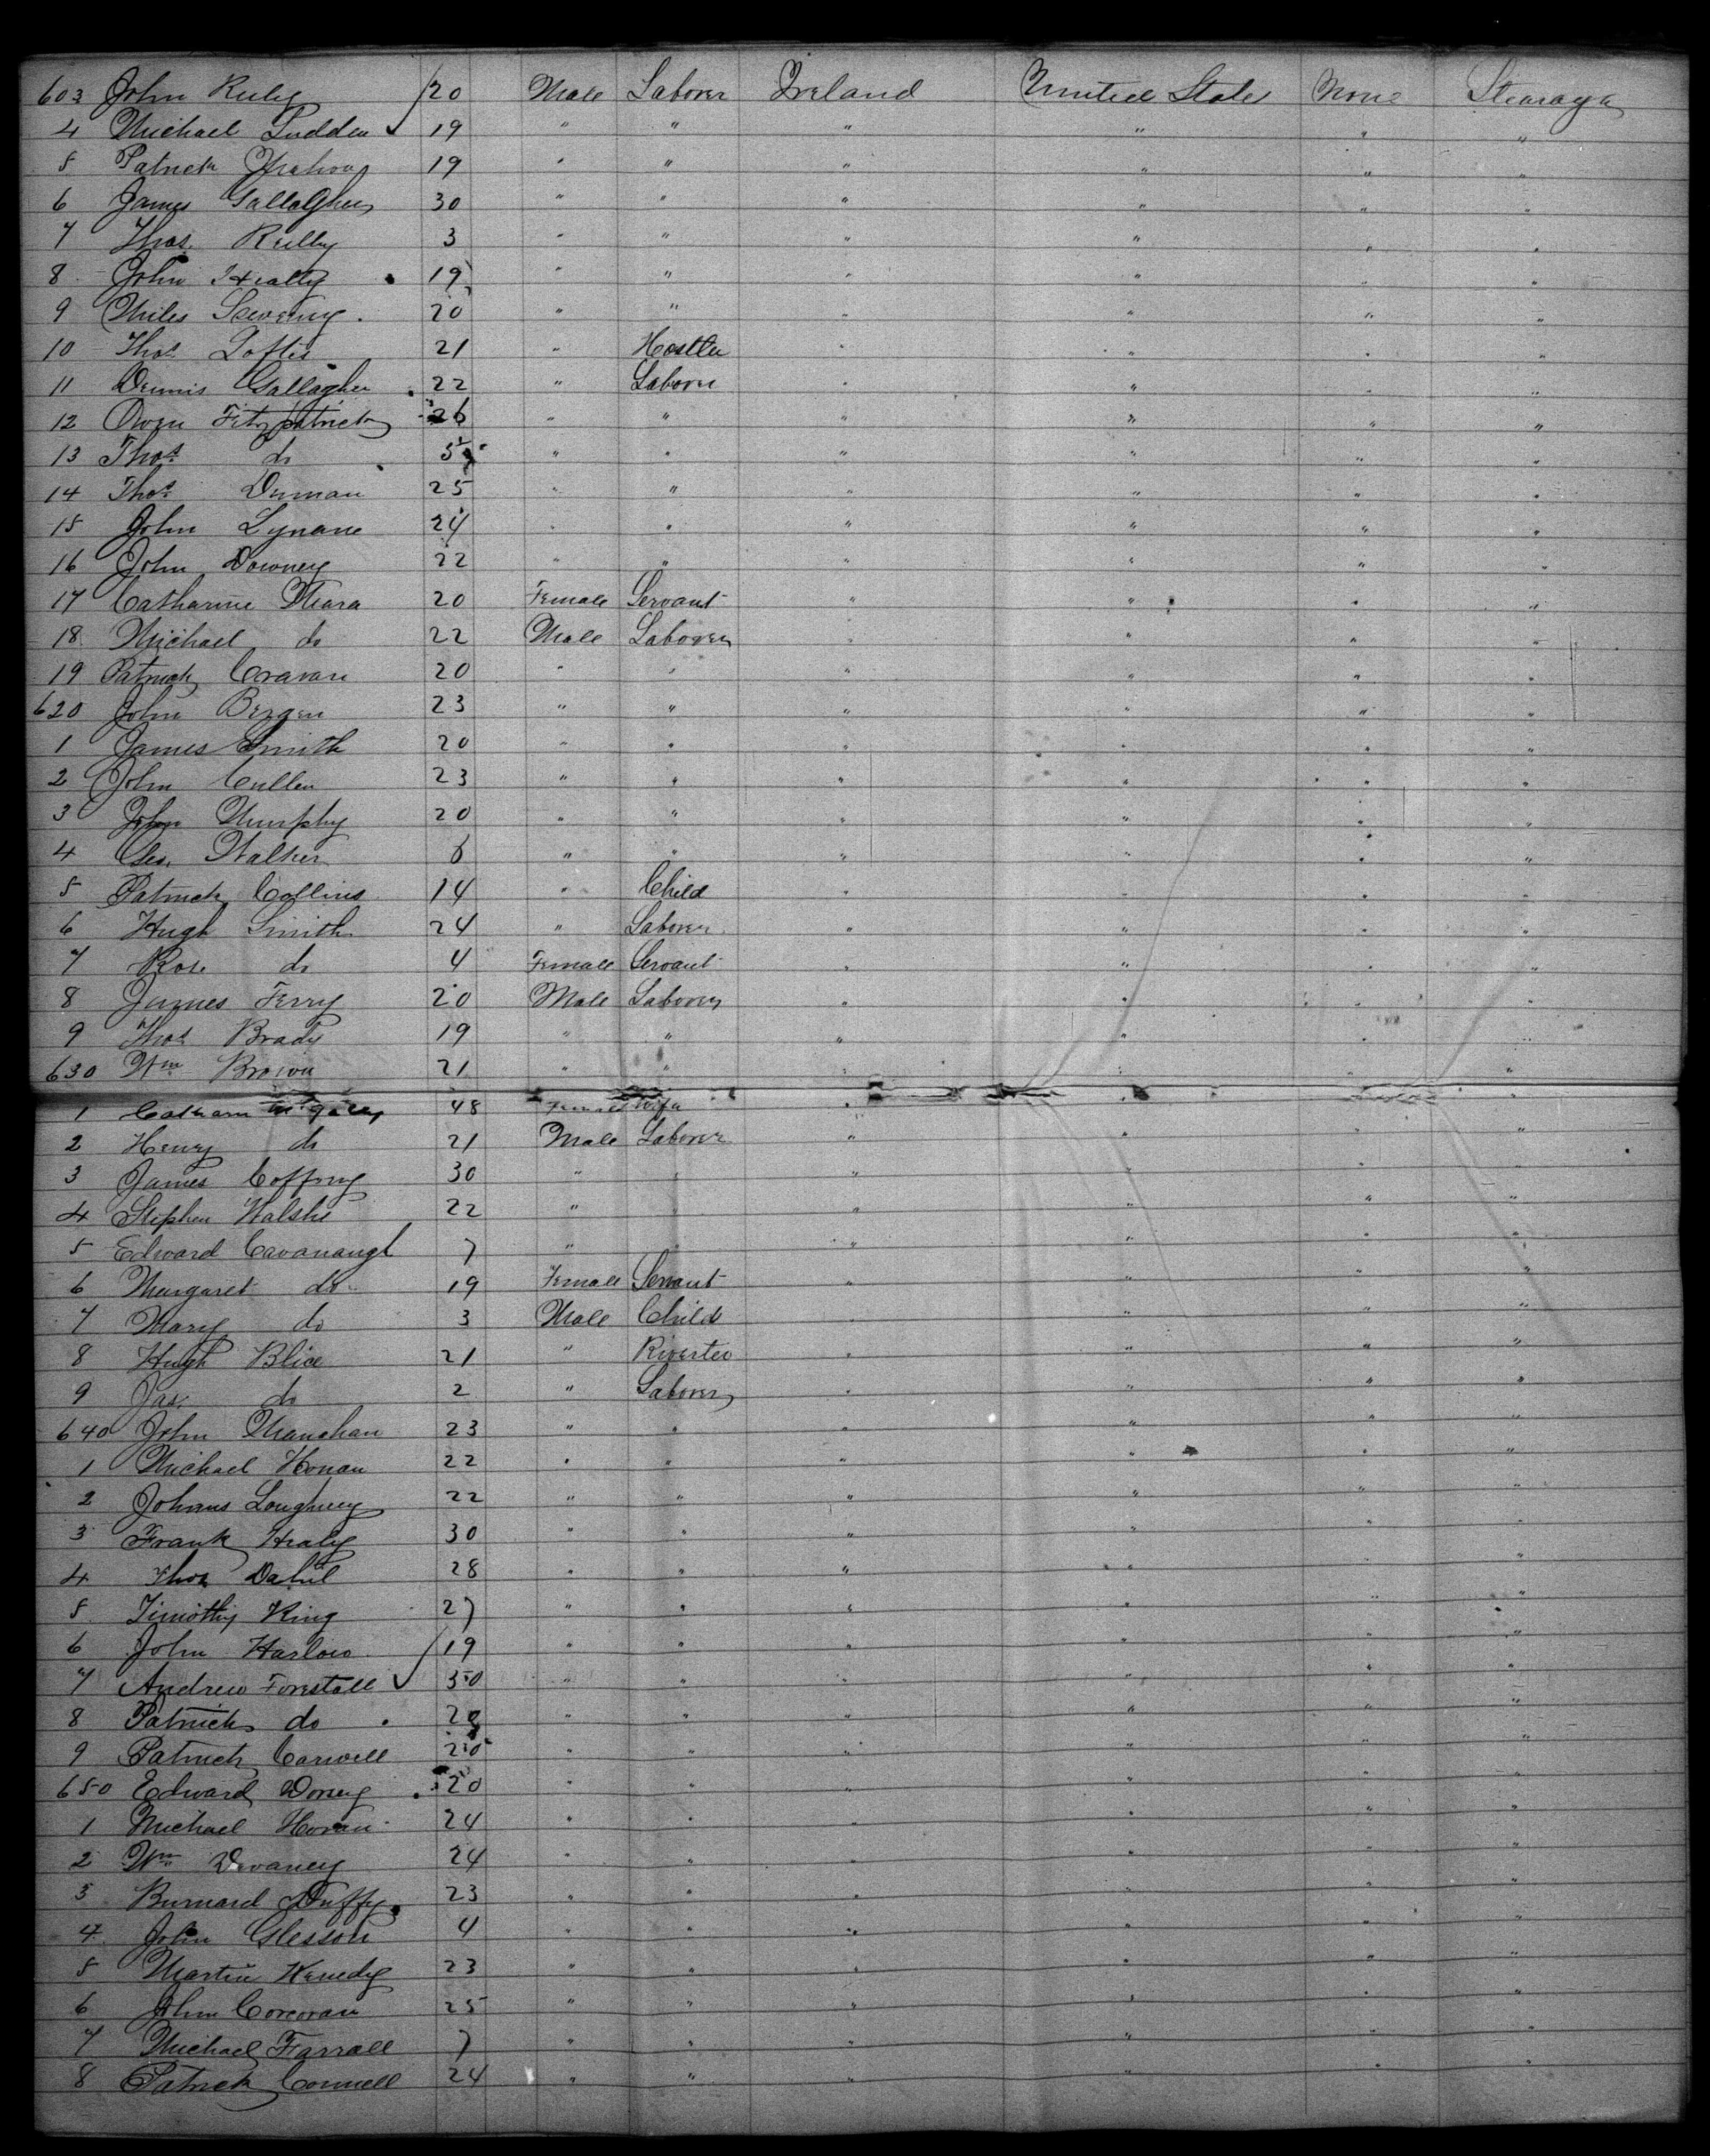 603 John Reily 20 Male Laborer Ireland United States None Stearage
4 Michael Ludden 19 " " " " " "
5 Patrick 19 " " " " " "
6 James Gallagher 30 " " " " " "
7 Thos. Reilly 3 " " " " " "
8 John Healty 19 " " " " " "
9 Miles 20 " " " " " "
10 Thos. Loftis 21 " Hostler " " " "
11 Dennis Gallagher 22 " Laborer " " " "
12 Owen Fitzpatrick 26 " " " " " "
13 Thos. do " " " " " "
14 Thos. 25 " " " " " "
15 John Lynane 24 " " " " " "
16 John Downey 22 " " " " " "
17 Catharine 20 Female Servant " " " "
18 Michael do 22 Male Laborer " " " "
19 Patrick Cravan 20 " " " " " "
620 John Bergen 23 " " " " " "
1 James Smith 20 " " " " " "
2 John Cullen 23 " " " " " "
3 John Murphy 20 " " " " " "
4 Geo. Walker 6 " " " " " "
5 Patrick Collins 14 " Child " " " "
6 Hugh Smith 24 " Laborer " " " "
7 Rose do 4 Female Servant " " " "
8 James Ferry 20 Male Laborer " " " "
9 Thos. Brady 19 " " " " " "
630 Wm Brown 21 " " " " " "
1 Catharn 48 Female Wife " " " "
2 Henry do 21 Male Laborer " " " "
3 James Coffrey 30 " " " " " "
4 Stephen Walshe 22 " " " " " "
5 Edward Cavanaugh 7 " " " " " "
6 Margaret do 19 Female Servant " " " "
7 Mary do 3 Male Child " " " "
8 Hugh Blice 21 " " " " "
9 Jas. do 2 " Laborer " " " "
640 John Manghan 23 " " " " " "
1 Michael Honan 22 " " " " " "
2 Loughney 22 " " " " " "
3 Frank Healy 30 " " " " " "
4 Thos. Dahil 28 " " " " " "
5 Timothy King 27 " " " " " "
6 John Harlow 19 " " " " " "
7 Andrew Forestall 30 " " " " " "
8 Patrick do " " " " " "
9 Patrick Carwell 20 " " " " " "
650 Edward Dorsey 20 " " " " " "
1 Michael Horan 24 " " " " " "
2 Wm Devaney 24 " " " " " "
3 Burnard Duffy 23 " " " " " "
4 John Glesson 4 " " " " " "
5 Martin Kenedy 23 " " " " " "
6 John Corcoran 25 " " " " " "
7 Michael Farrall 7 " " " " " "
8 Patrick Connell 24 " " " " " "